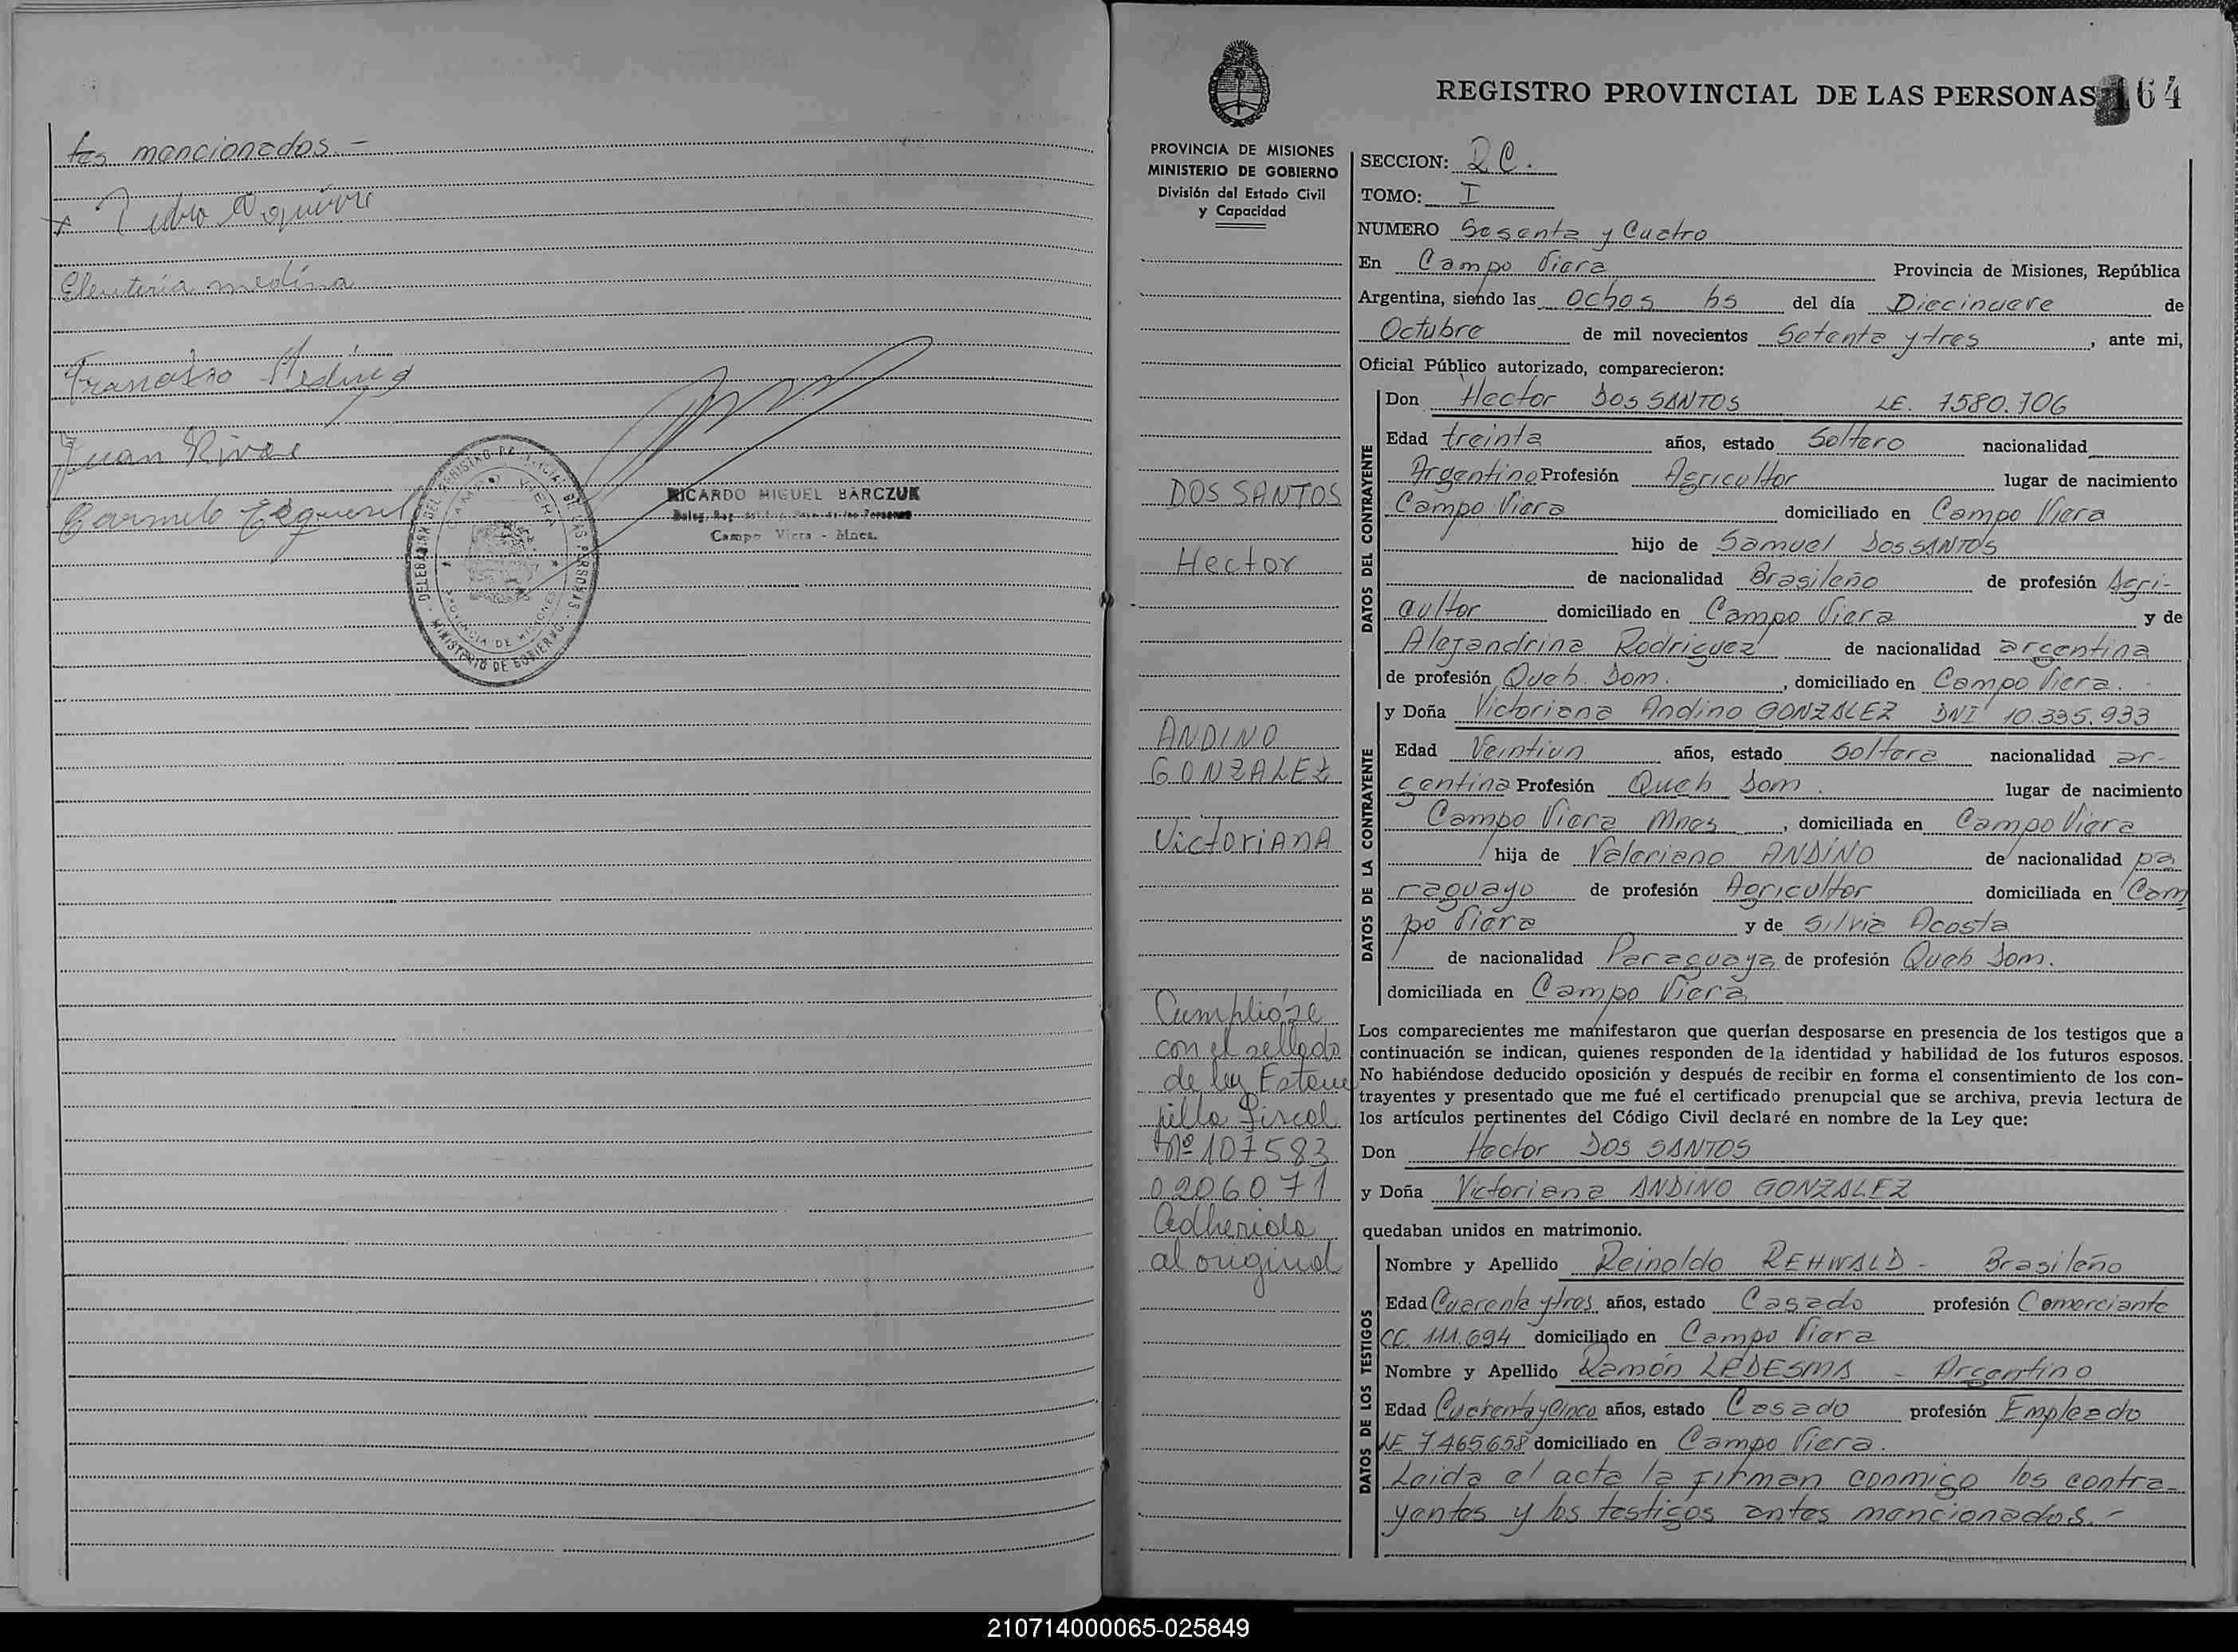 tes mencionados.-
Eleuteria medina
Juan Rivas
RICARDO MIGUEL BARCZUK
Campo Viera - Mnes.
CAMPO VIERA
PROVINCIA DE MISIONES
MINISTERIO DE GOBIERNO
REGISTRO PROVINCIAL DE LAS PERSONAS 64
PROVINCIA DE MISIONES
MINISTERIO DE GOBIERNO
División del Estado Civil
y Capacidad
DOS SANTOS
Hector
ANDINO
GONZALEZ
VictoriAnA
Cumplióse
con el sellado
de ley Estam
pilla fiscal
Nº 107583
0206071
Adherida
al original
SECCION: R C.
TOMO: I
NUMERO Sesenta y Cuatro
En Campo Viera Provincia de Misiones, República
Argentina, siendo las Ochos hs del día Diecinueve de
Octubre de mil novecientos Setenta y tres, ante mi,
Oficial Público autorizado, comparecieron:
DATOS DEL CONTRAYENTE
Don Hector Dos SANTOS LE. 7580.706
Edad treinta años, estado Soltero nacionalidad
Argentino Profesión Agricultor lugar de nacimiento
Campo Viera domiciliado en Campo Viera
hijo de Samuel Dos SANTOS
de nacionalidad Brasileño de profesión Agri-
cultor domiciliado en Campo Viera y de
Alejandrina Rodriguez de nacionalidad argentina
de profesión Queh. Dom. , domiciliado en Campo Viera.
DATOS DE LA CONTRAYENTE
y Doña Victoriana Andino GONZALEZ DNI 10.335.933
Edad Veintiun años, estado Soltera nacionalidad ar-
gentina Profesión Queh Dom. lugar de nacimiento
Campo Viera Mnes , domiciliada en Campo Viera
hija de Valeriano ANDINO de nacionalidad pa
raguayo de profesión Agricultor domiciliada en Cam
po Viera y de Silvia Acosta
de nacionalidad Paraguaya de profesión Queh Dom.
domiciliada en Campo Viera
Los comparecientes me manifestaron que querían desposarse en presencia de los testigos que a
continuación se indican, quienes responden de la identidad y habilidad de los futuros esposos.
No habiéndose deducido oposición y después de recibir en forma el consentimiento de los con-
trayentes y presentado que me fué el certificado prenupcial que se archiva, previa lectura de
los artículos pertinentes del Código Civil declaré en nombre de la Ley que:
Don Hector DOS SANTOS
y Doña Victoriana ANDINO GONZALEZ
quedaban unidos en matrimonio.
DATOS DE LOS TESTIGOS
Nombre y Apellido Reinoldo REHWALD - Brasileño
Edad Cuarenta y tres años, estado Casado profesión Comerciante
CC. 111.694 domiciliado en Campo Viera
Nombre y Apellido Ramón LEDESMA - Argentino
Edad Cuarenta y Cinco años, estado Casado profesión Empleado
LE 7.465.658 domiciliado en Campo Viera.
Leida el acta la firman conmigo los contra-
yentes y los testigos antes mencionados.-
210714000065-025849